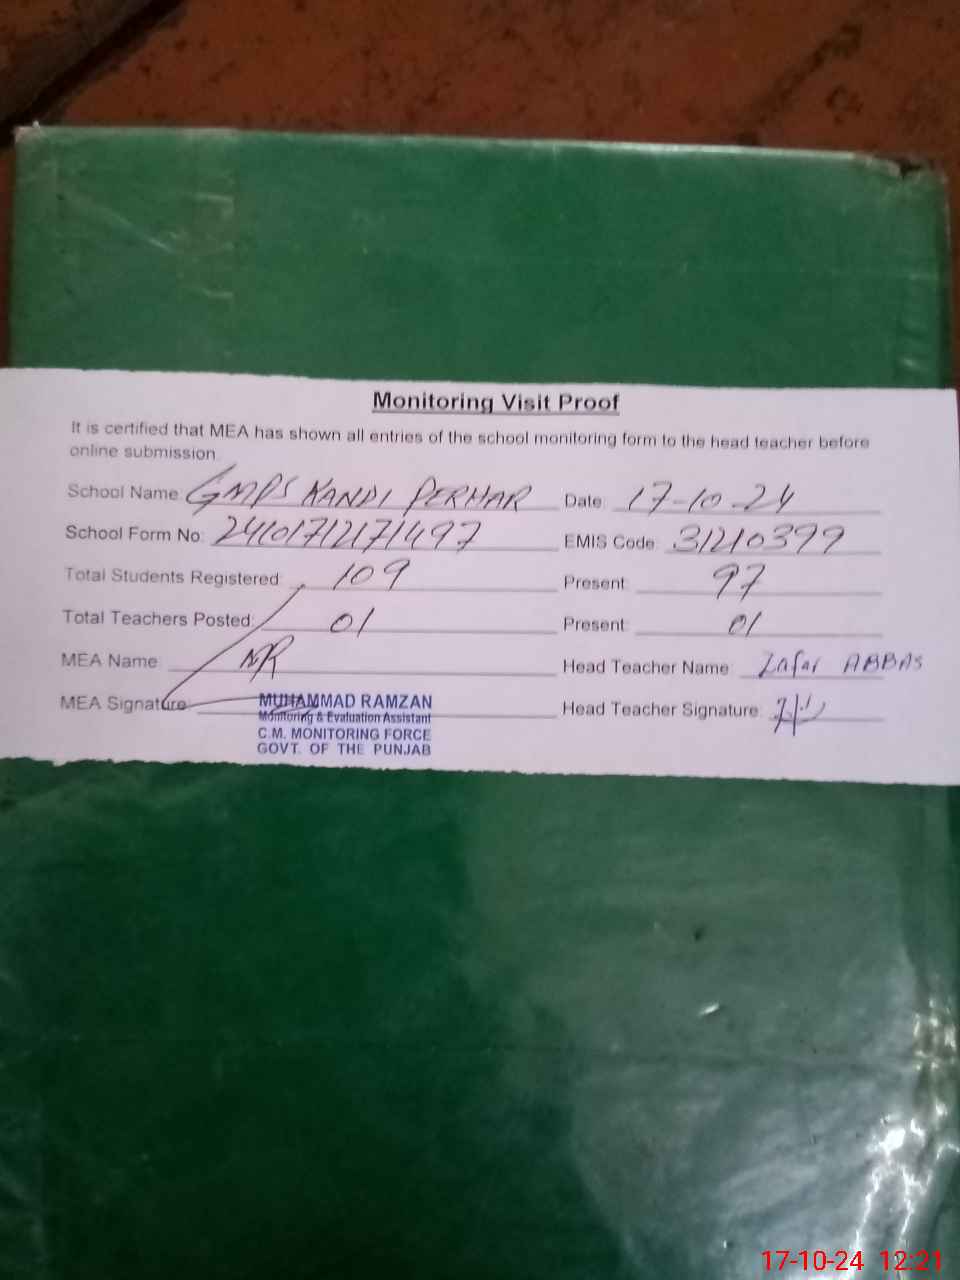 Monitoring Visit Proof
It is certified that MEA has shown all entries of the school monitoring form to the head teacher before
online submission.
School Name: GMPS KANDI PERHAR Date: 17-10-24
School Form No: 24101712171497 EMIS Code: 31210399
Total Students Registered: 109 Present: 97
Total Teachers Posted: 01 Present: 01
MEA Name: MR Head Teacher Name: Zafar ABBAS
MEA Signature Head Teacher Signature:
MUHAMMAD RAMZAN
Monitoring & Evaluation Assistant
C.M. MONITORING FORCE
GOVT. OF THE PUNJAB
17-10-24 12:21